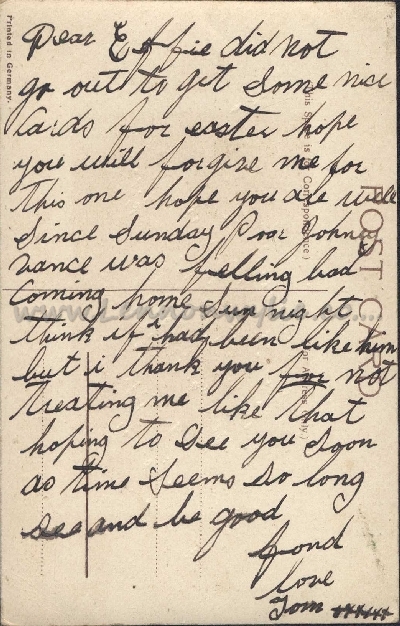 Dear Effie did not
go out to get some nice
cards for easter hope
you will forgive me for
this one hope you are well
since Sunday Poor Johny
vance was felling bad
Coming home Sun night
think if i had been like him
but i thank you for not
treating me like that
hoping to see you soon
as time seems so long
see and be good
fond
love
Tom xxxxxx
Printed in Germany.
POST CARD
This Space is for Correspondence
Address Only.)